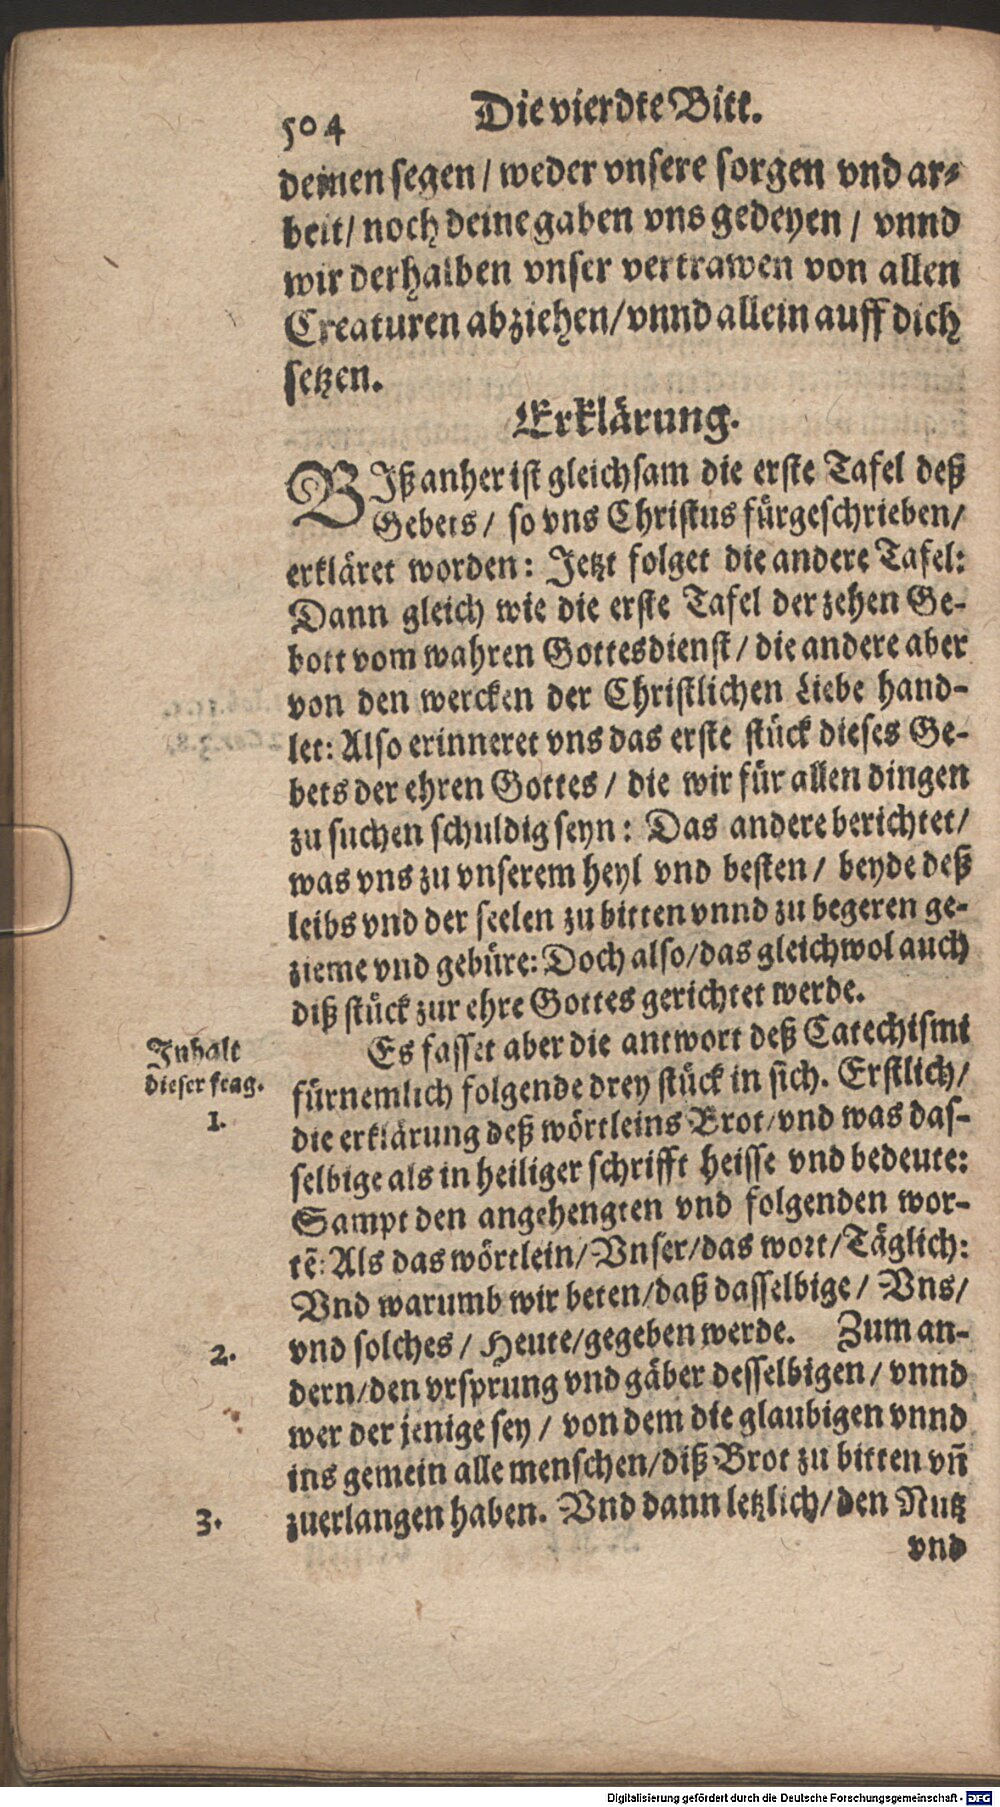 504 Die vierdte Bitt.
deinen segen / weder vnsere sorgen vnd ar-
beit / noch deine gaben vns gedeyen / vnnd
wir derhalben vnser vertrawen von allen
Creaturen abziehen / vnnd allein auff dich
setzen.
Erklärung.
BIß anher ist gleichsam die erste Tafel deß
Gebets / so vns Christus fürgeschrieben /
erkläret worden: Jetzt folget die andere Tafel:
Dann gleich wie die erste Tafel der zehen Ge-
bott vom wahren Gottesdienst / die andere aber
von den wercken der Christlichen Liebe hand-
let: Also erinneret vns das erste stück dieses Ge-
bets der ehren Gottes / die wir für allen dingen
zu suchen schuldig seyn: Das andere berichtet /
was vns zu vnserem heyl vnd besten / beyde deß
leibs vnd der seelen zu bitten vnnd zu begeren ge-
zieme vnd gebüre: Doch also / das gleichwol auch
diß stück zur ehre Gottes gerichtet werde.
Inhalt
dieser frag.
1.
Es fasset aber die antwort deß Catechismi
fürnemlich folgende drey stück in sich. Erstlich /
die erklärung deß wörtleins Brot / vnd was das-
selbige als in heiliger schrifft heisse vnd bedeute:
Sampt den angehengten vnd folgenden wor-
tē: Als das wörtlein / Vnser / das wort / Täglich:
Vnd warumb wir beten / daß dasselbige / Vns /
2. vnd solches / Heute / gegeben werde. Zum an-
dern / den vrsprung vnd gäber desselbigen / vnnd
wer der jenige sey / von dem die glaubigen vnnd
ins gemein alle menschen / diß Brot zu bitten vn̄
3. zuerlangen haben. Vnd dann letzlich / den Nutz
vnd
Digitalisierung gefördert durch die Deutsche Forschungsgemeinschaft - DFG